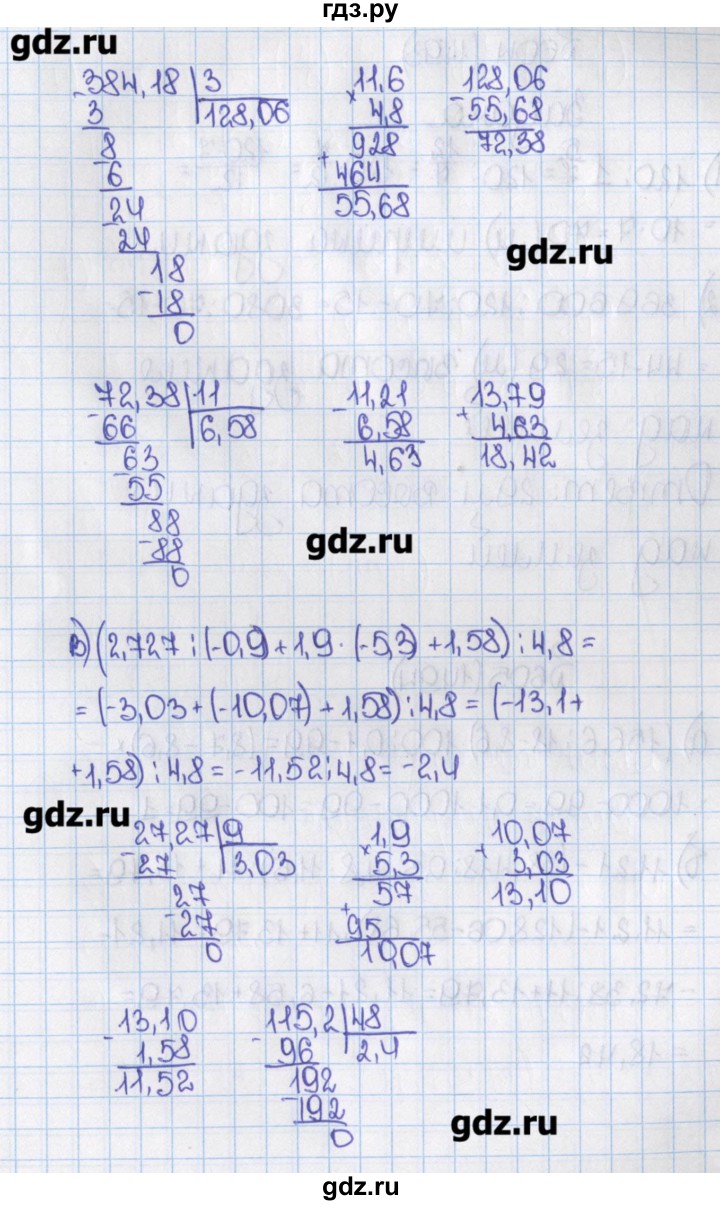 гдз.ру
gdz.ru
384,18 | 3
3 128,06
8
6
24
24
18
-18
0
11,6
× 4,8
928
+ 464
55,68
128,06
- 55,68
72,38
gdz.ru
72,38 | 11
- 66 6,58
63
55
88
-88
0
- 11,21
6,58
4,63
13,79
+ 4,63
18,42
gdz.ru
в) (2,727 : (-0,9) + 1,9 · (-5,3) + 1,58) : 4,8 =
= (-3,03 + (-10,07) + 1,58) : 4,8 = (-13,1 +
+ 1,58) : 4,8 = -11,52 : 4,8 = -2,4
gdz.ru
27,27 | 9
- 27 3,03
27
- 27
0
1,9
× 5,3
57
+ 95
10,07
10,07
+ 3,03
13,10
- 13,10
1,58
11,52
115,2 | 48
- 96 2,4
192
- 192
0
gdz.ru
gdz.ru